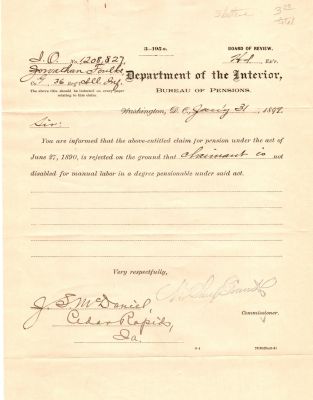 3.00
3-195a.
BOARD OF REVIEW.
I. O. No. 1208,827,
Hd. Ex'r.
Jonathan Foulke
36 Reg't Ill. Inf.
Department of the Interior,
The above title should be indorsed on every paper
relating to this claim.
BUREAU OF PENSIONS.
Washington, D. C., Jan'y 31, 1899.
Sir:
You are informed that the above-entitled claim for pension under the act of
June 27, 1890, is rejected on the ground that claimant is not
disabled for manual labor in a degree pensionable under said act.
Very respectfully,
Commissioner.
J. S. McDaniel,
Cedar Rapids,
Ia.